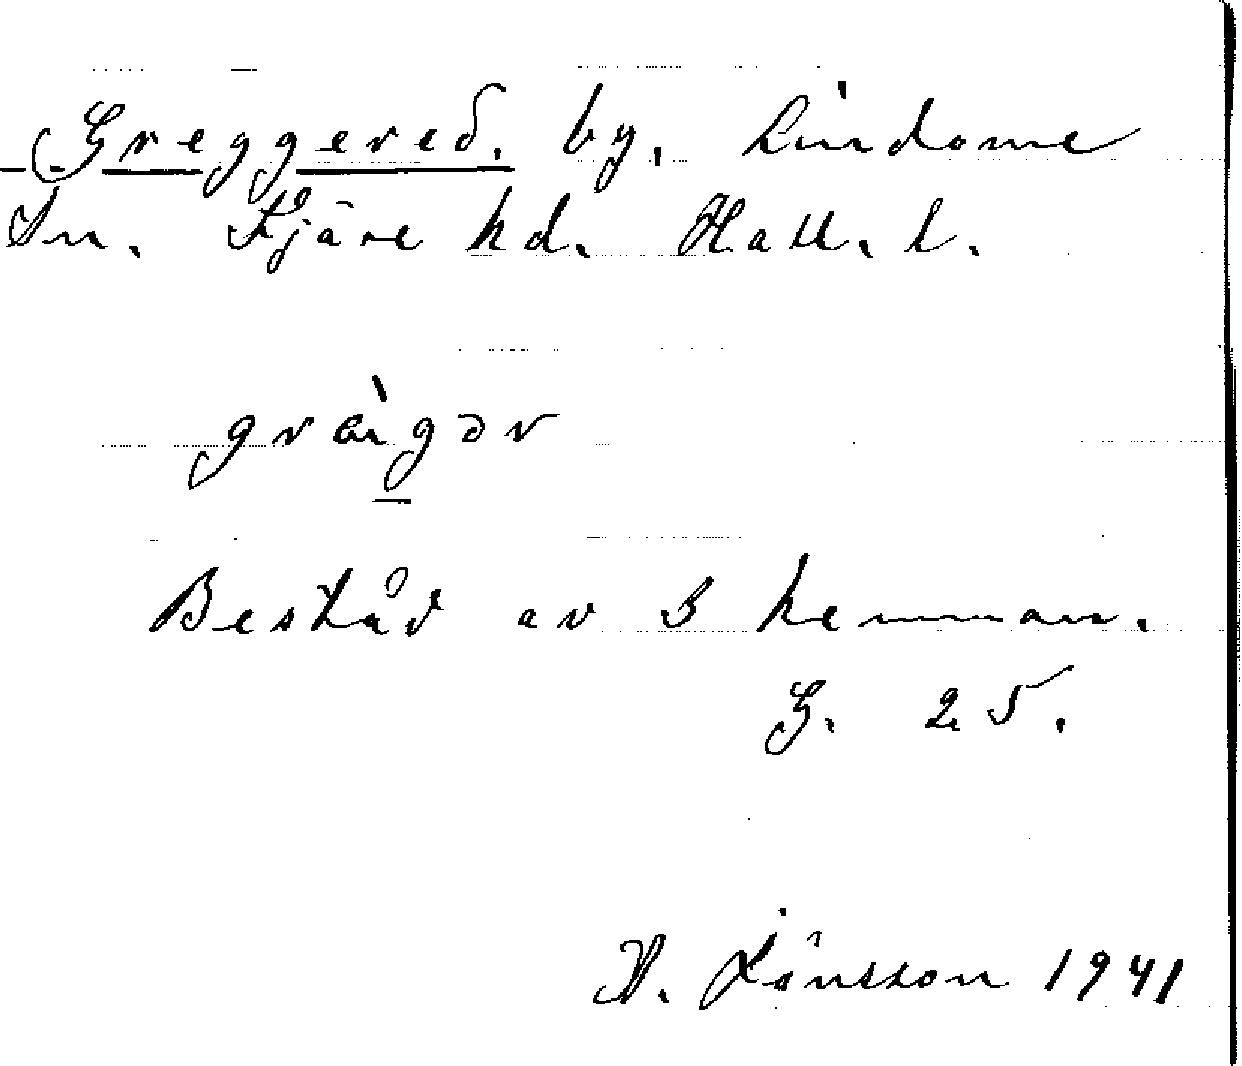 Greggered. by. Lindome
Sn. Fjäre hd. Hall. l.
gràigər
Består av 3 hemman.
G. 25.
H. Jönsson 1941